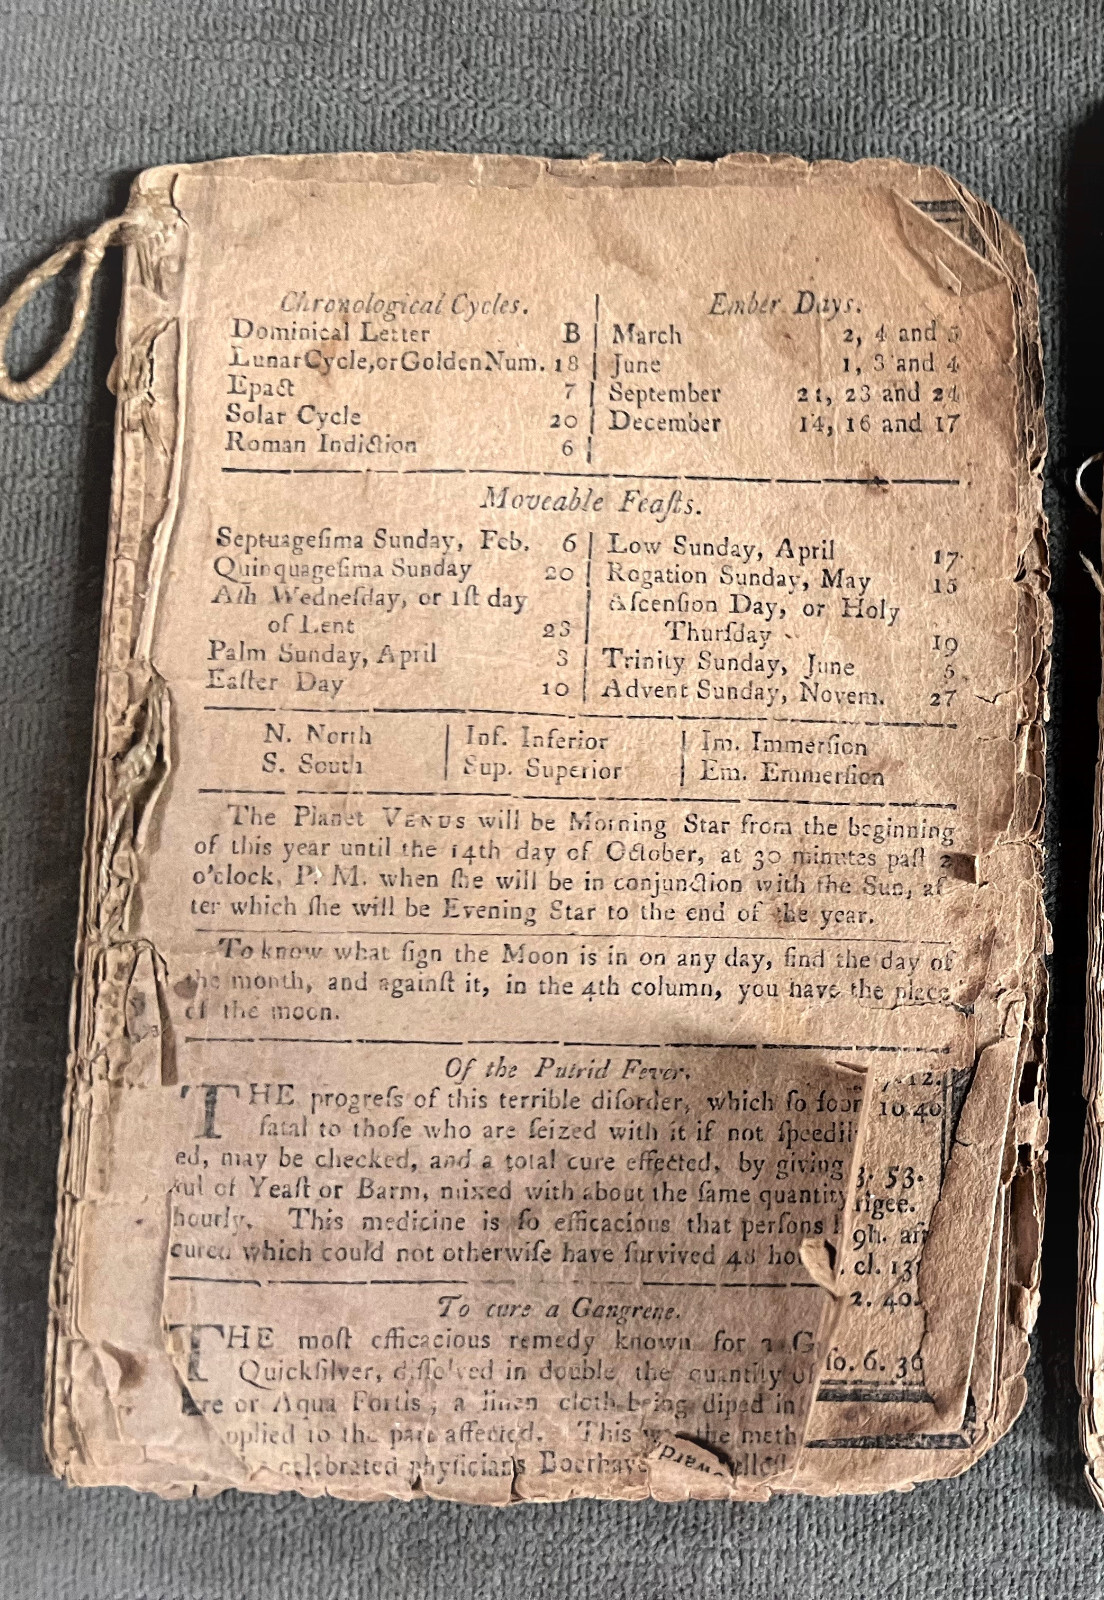 Chronological Cycles.
Dominical Letter B
Lunar Cycle, or Golden Num. 18
Epact 7
Solar Cycle 20
Roman Indiction 6
Ember Days.
March 2, 4 and 5
June 1, 3 and 4
September 21, 23 and 24
December 14, 16 and 17
Moveable Feaſts.
Septuageſima Sunday, Feb. 6
Quinquageſima Sunday 20
Aſh Wedneſday, or 1ſt day
of Lent 23
Palm Sunday, April 3
Eaſter Day 10
Low Sunday, April 17
Rogation Sunday, May 15
Aſcenſion Day, or Holy
Thurſday 19
Trinity Sunday, June 5
Advent Sunday, Novem. 27
N. North
S. South
Inf. Inferior
Sup. Superior
Im. Immerſion
Em. Emmerſion
The Planet VENUS will be Morning Star from the beginning
of this year until the 14th day of October, at 30 minutes paſt 2
o'clock, P. M. when ſhe will be in conjunction with the Sun, af
ter which ſhe will be Evening Star to the end of the year.
To know what ſign the Moon is in on any day, find the day of
the month, and againſt it, in the 4th column, you have the place
of the moon.
Of the Putrid Fever.
THE progreſs of this terrible diſorder, which ſo ſoon
fatal to thoſe who are ſeized with it if not ſpeedil
ed, may be checked, and a total cure effected, by giving
ful of Yeaſt or Barm, mixed with about the ſame quantity
hourly. This medicine is ſo efficacious that perſons
cured which could not otherwiſe have ſurvived 48 ho
To cure a Gangrene.
THE moſt efficacious remedy known for a G
Quickſilver, diſſolved in double the quantity of
re or Aqua Fortis; a linen cloth being diped in
pplied to the part affected. This was the meth
celebrated phyſicians Boerhave
12.
10 40
3. 53.
rigee.
9h. aft
cl. 13
2. 40.
ſo. 6. 36
ward